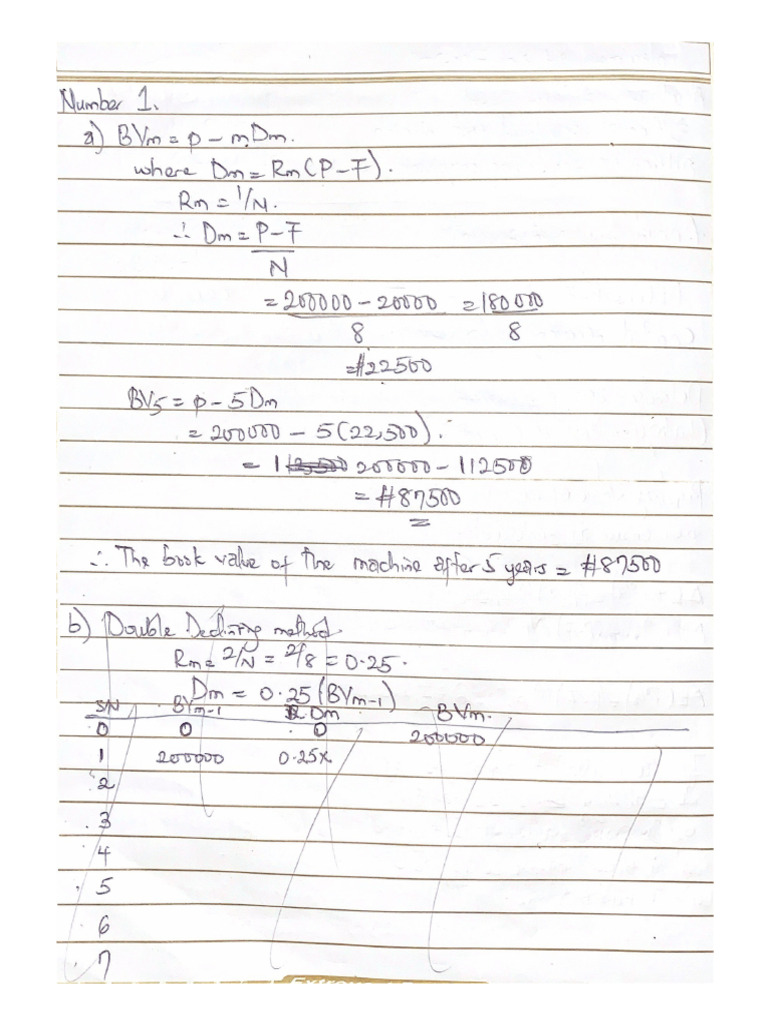 Number 1.
a) BVm = P - mDm.
where Dm = Rm (P-F).
Rm = 1/N.
∴ Dm = P-F
N
= 200000 - 20000 = 180000
8 8
= #22500
BV5 = P - 5Dm
= 200000 - 5(22,500).
= 200000 - 112500
= #87500
∴ The book value of the machine after 5 years = #87500
b) Double Declining method
Rm = 2/N = 2/8 = 0.25.
Dm = 0.25 (BVm-1)
SN BVm-1 Dm BVm.
0 0 0 200000
1 200000 0.25x
2
3
4
5
6
7